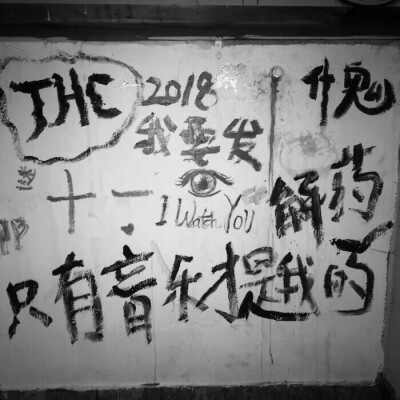 THC 2018 什鬼
我要发
谜 十
I Watch You
解药
只有音乐才是我的